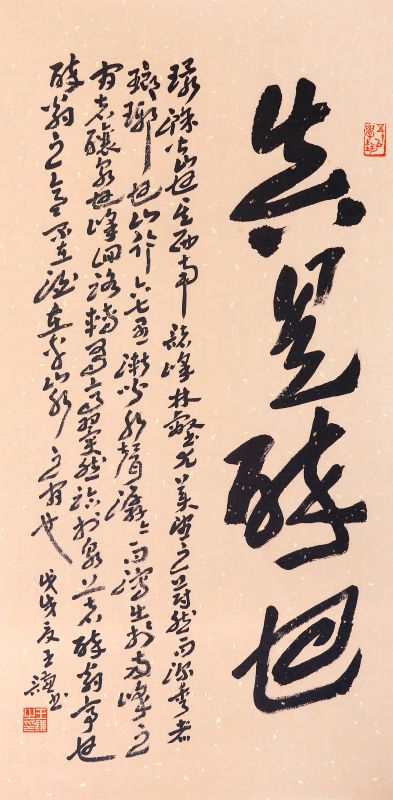 真是醉也
環滁皆山也其西南諸峰林壑尤美望之蔚然而深秀者
瑯琊也山行六七里漸聞水聲潺潺而瀉出於兩峰之
間者釀泉也峰回路轉有亭翼然臨於泉上者醉翁亭也
醉翁之意不在酒在乎山水之間也
戊戌夏王謙書
王謙之印